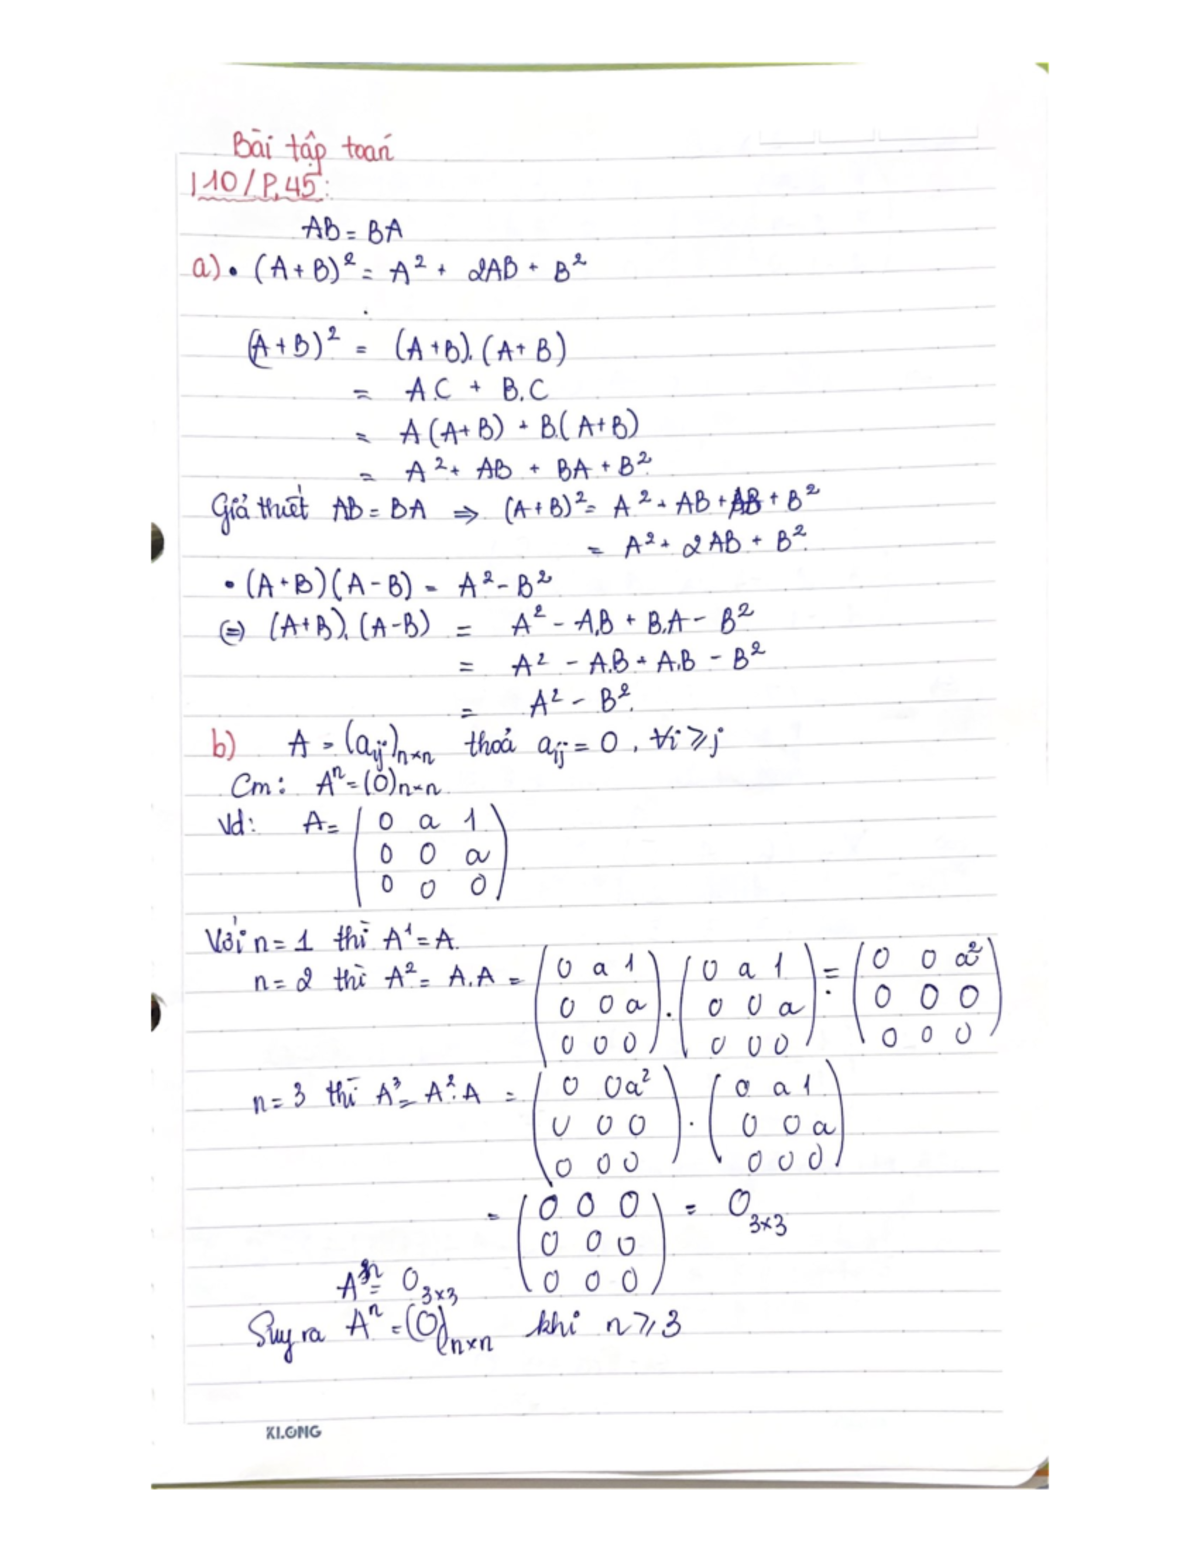 Bài tập toán
1.10/P.45:
AB = BA
a) • (A+B)² = A² + 2AB + B²
(A+B)² = (A+B).(A+B)
= A.C + B.C
= A(A+B) + B.(A+B)
= A² + AB + BA + B²
Giả thiết AB = BA ⇒ (A+B)² = A² + AB + AB + B²
= A² + 2AB + B²
• (A+B)(A-B) = A² - B²
(=) (A+B).(A-B) = A² - A.B + B.A - B²
= A² - A.B + A.B - B²
= A² - B².
b) A = (aij)n×n thoả aij = 0, ∀i ⩾ j
Cm: Aⁿ = (0)n×n
Vd: A = ( 0 a 1
0 0 a
0 0 0 )
Với n = 1 thì A¹ = A.
n = 2 thì A² = A.A = ( 0 a 1 ) . ( 0 a 1 ) = ( 0 0 a² )
0 0 a 0 0 a 0 0 0
0 0 0 0 0 0 0 0 0
n = 3 thì A³ = A².A = ( 0 0 a² ) . ( 0 a 1 )
0 0 0 0 0 a
0 0 0 0 0 0
= ( 0 0 0 ) = O3×3
0 0 0
0 0 0
Aⁿ = O3×3
Suy ra Aⁿ = (0)n×n khi n ⩾ 3
KLONG